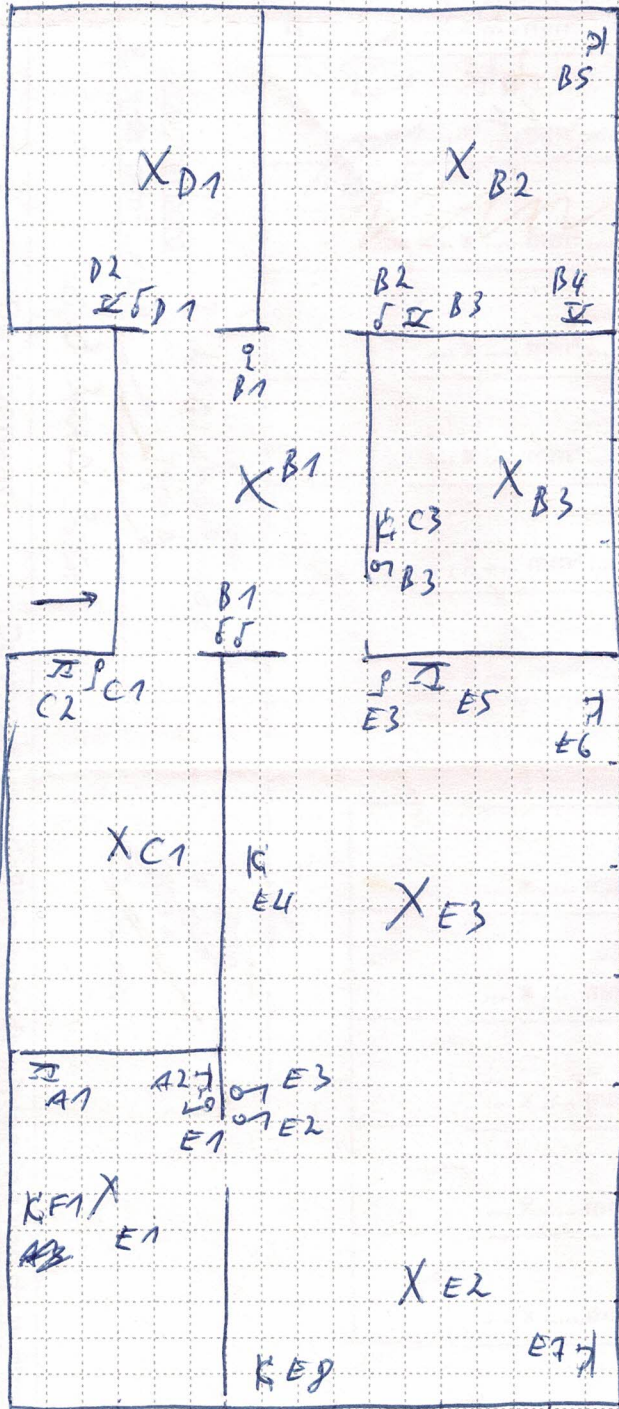 B5
D1
B2
D2
D1
B2
B3
B4
B1
B1
B3
C3
B3
B1
C1
C2
E3
E5
E6
C1
E4
E3
A1
A2
E3
E2
E1
F1
E1
E2
E7
E8